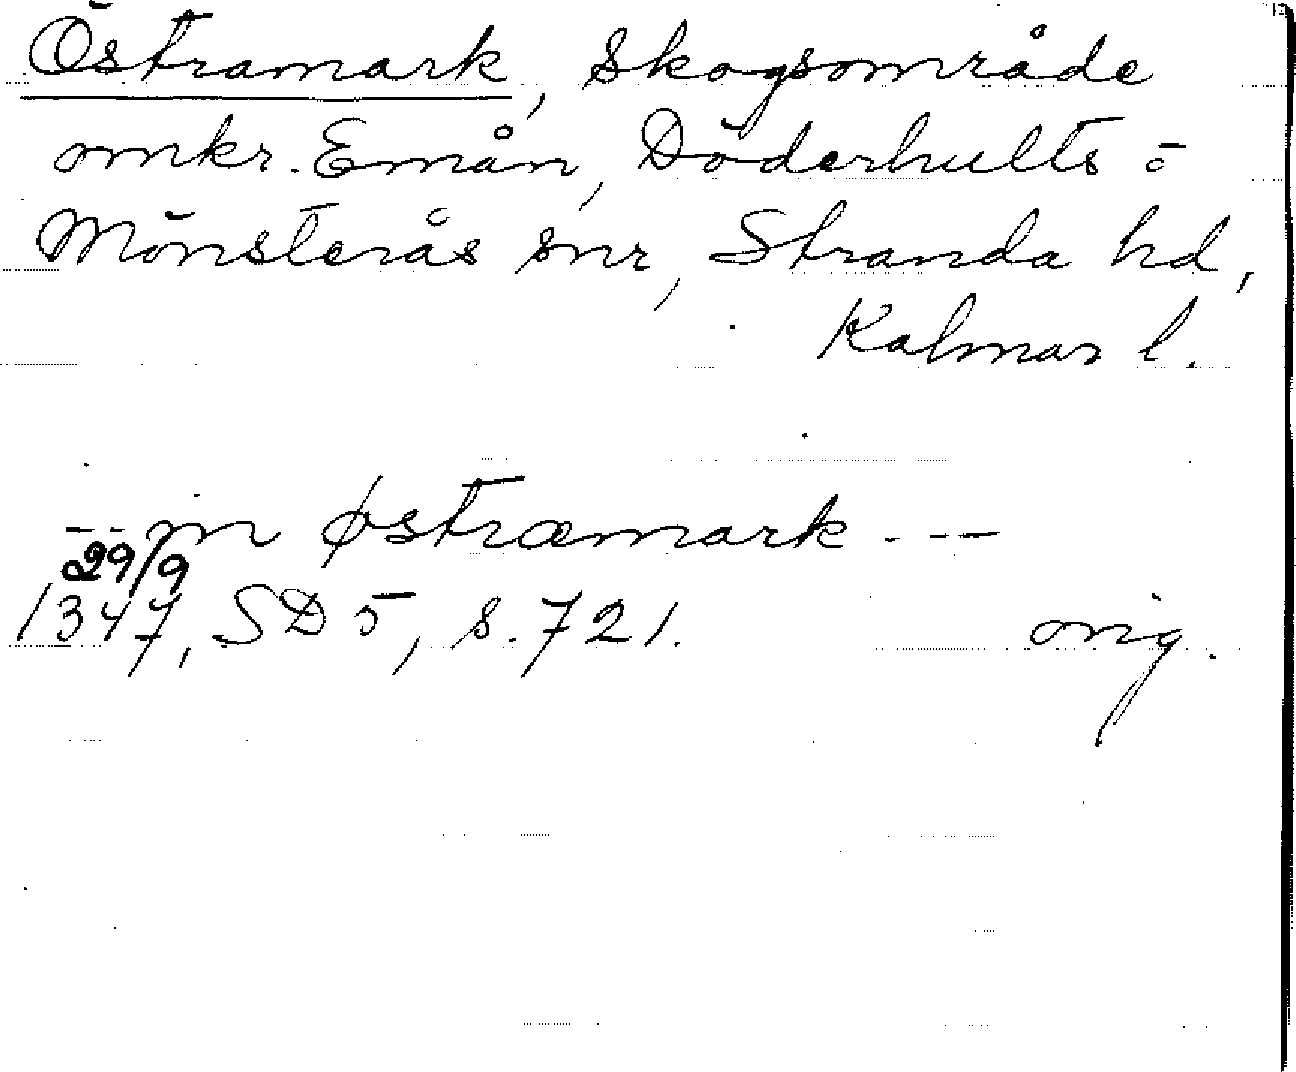 Östramark, skogsområde
omkr. Emån, Döderhults o
Mönsterås snr, Stranda hd,
Kalmar l.
--- m østræmark ---
29/9
1347, SD 5, s. 721. orig.